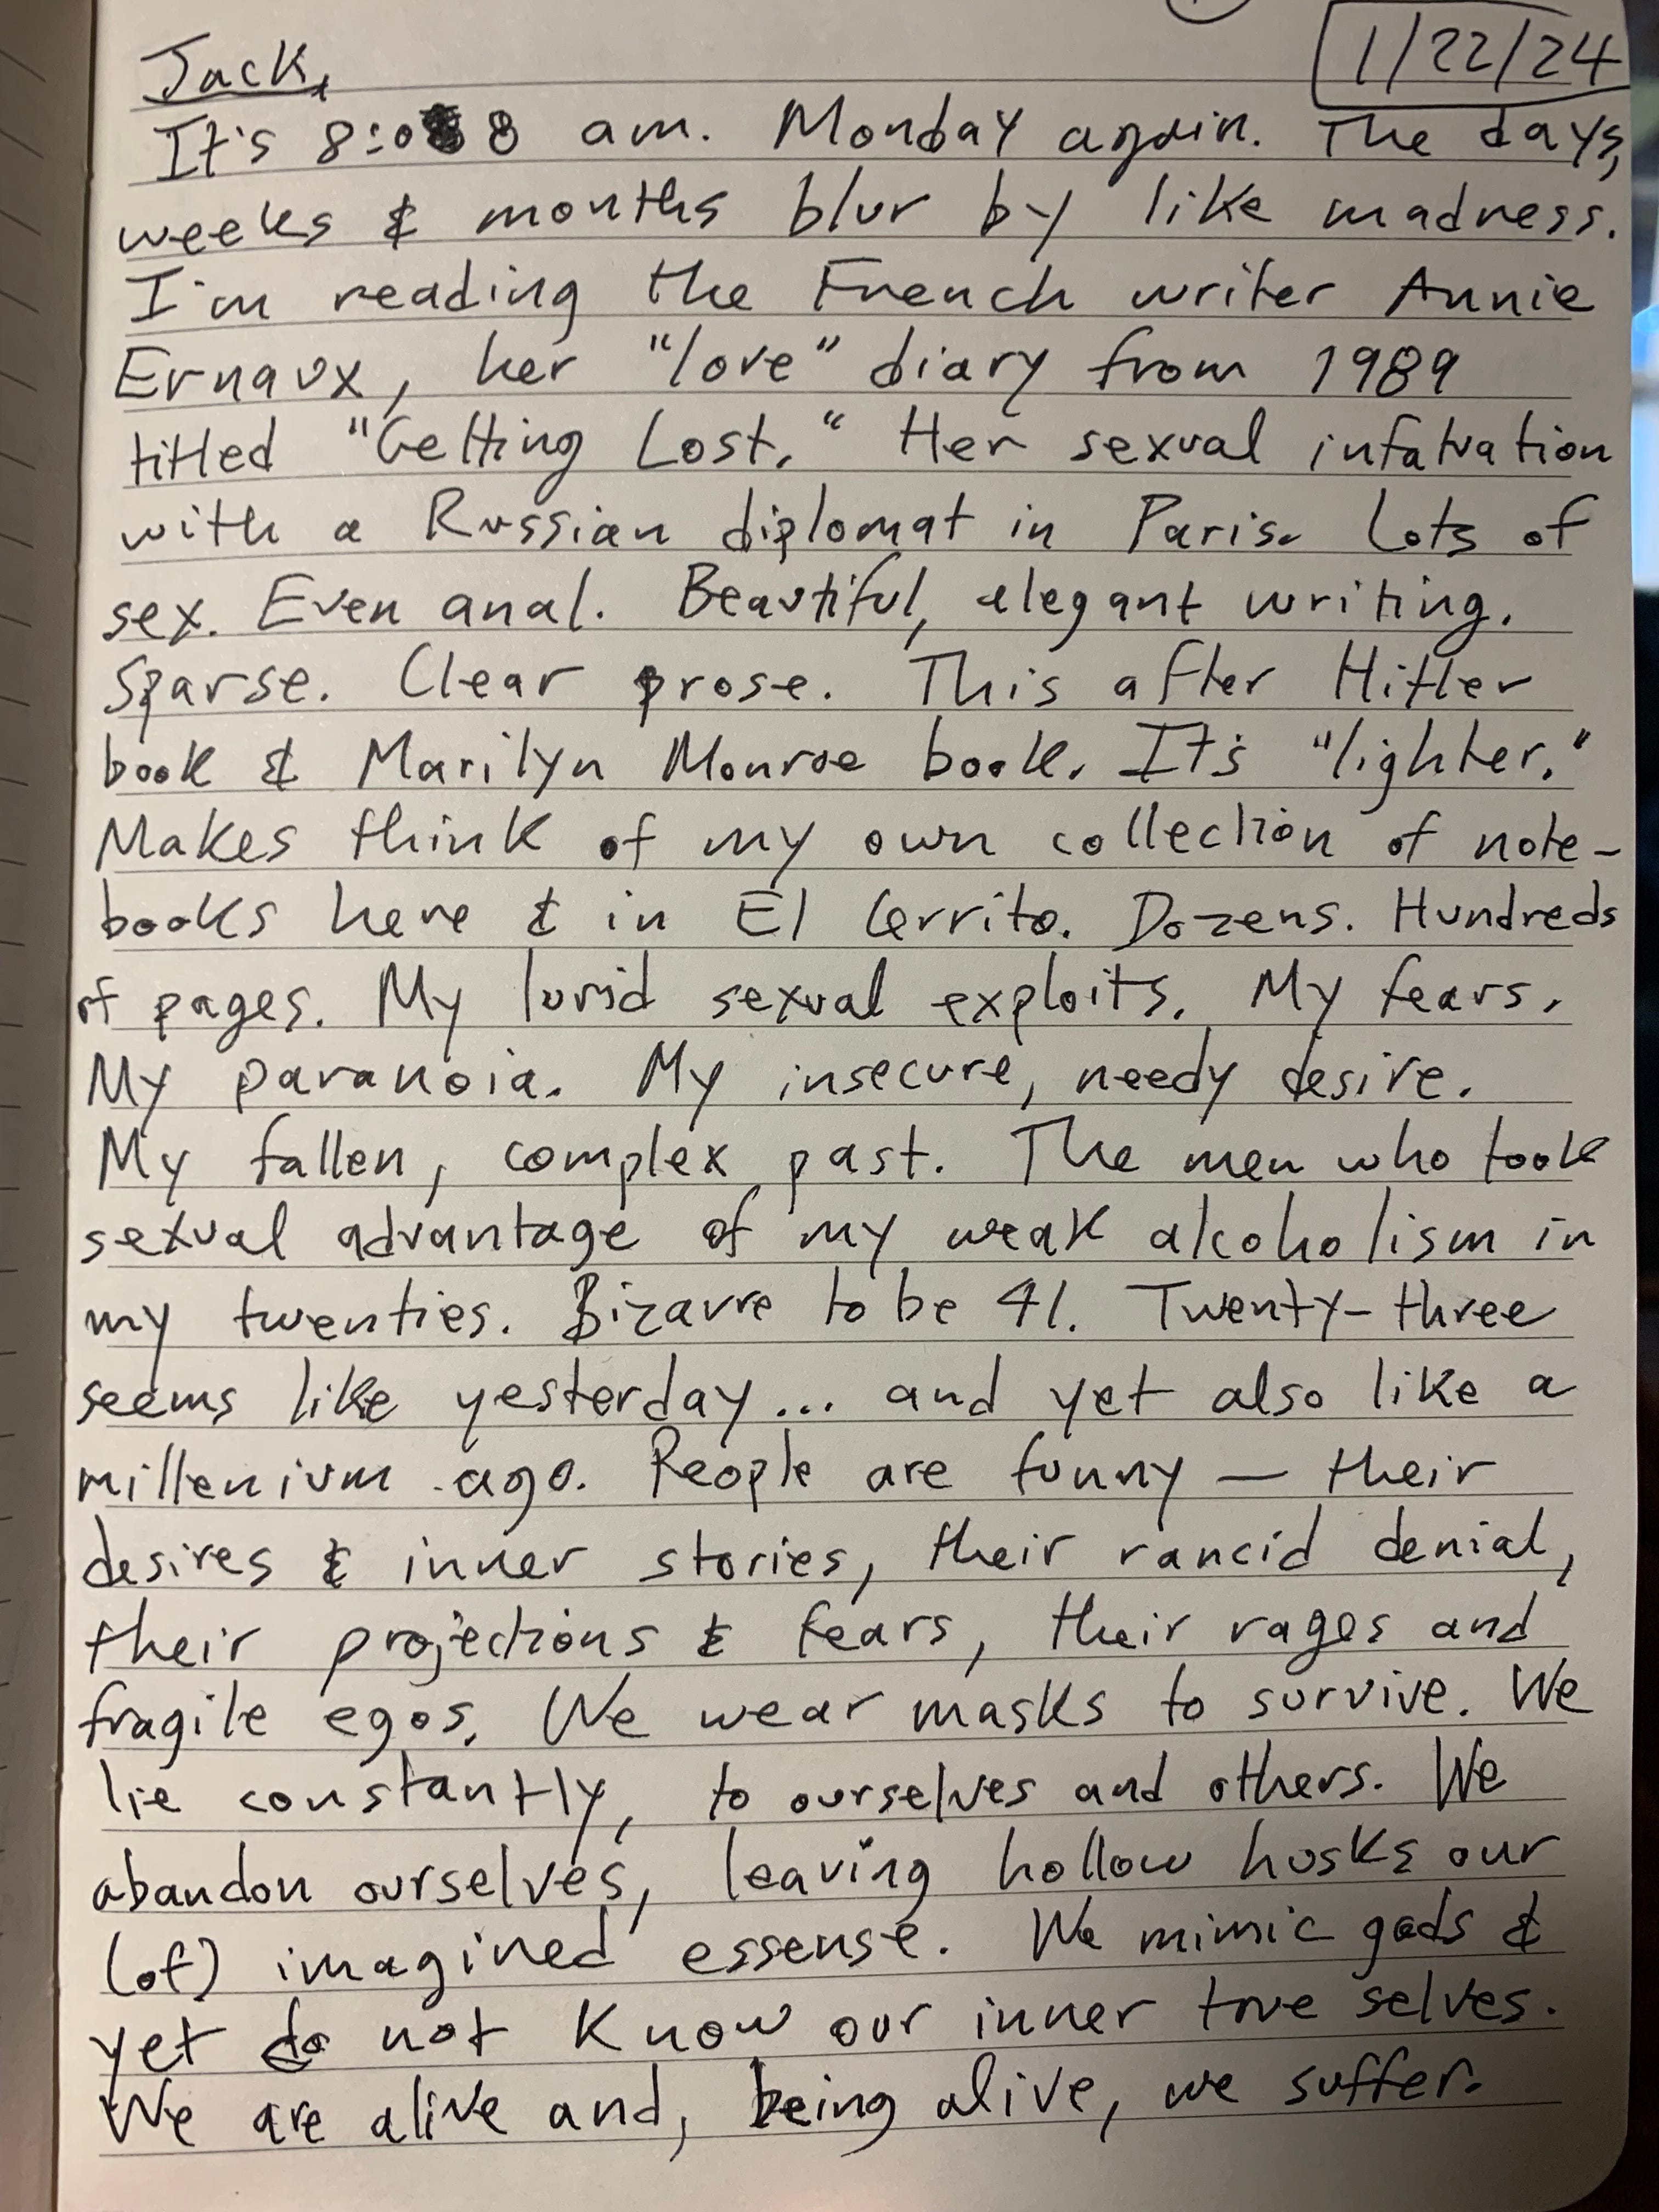 1/22/24
Jack,
It's 8:08 am. Monday again. The days,
weeks & months blur by like madness.
I'm reading the French writer Annie
Ernaux, her "love" diary from 1989
titled "Getting Lost." Her sexual infatuation
with a Russian diplomat in Paris. Lots of
sex. Even anal. Beautiful, elegant writing.
Sparse. Clear prose. This after Hitler
book & Marilyn Monroe book. It's "lighter."
Makes think of my own collection of note-
books here & in El Cerrito. Dozens. Hundreds
of pages. My lurid sexual exploits. My fears.
My paranoia. My insecure, needy desire.
My fallen, complex past. The men who took
sexual advantage of my weak alcoholism in
my twenties. Bizarre to be 41. Twenty-three
seems like yesterday... and yet also like a
millenium ago. People are funny — their
desires & inner stories, their rancid denial,
their projections & fears, their rages and
fragile egos. We wear masks to survive. We
lie constantly, to ourselves and others. We
abandon ourselves, leaving hollow husks our
(of) imagined essense. We mimic gods &
yet do not know our inner true selves.
We are alive and, being alive, we suffer.